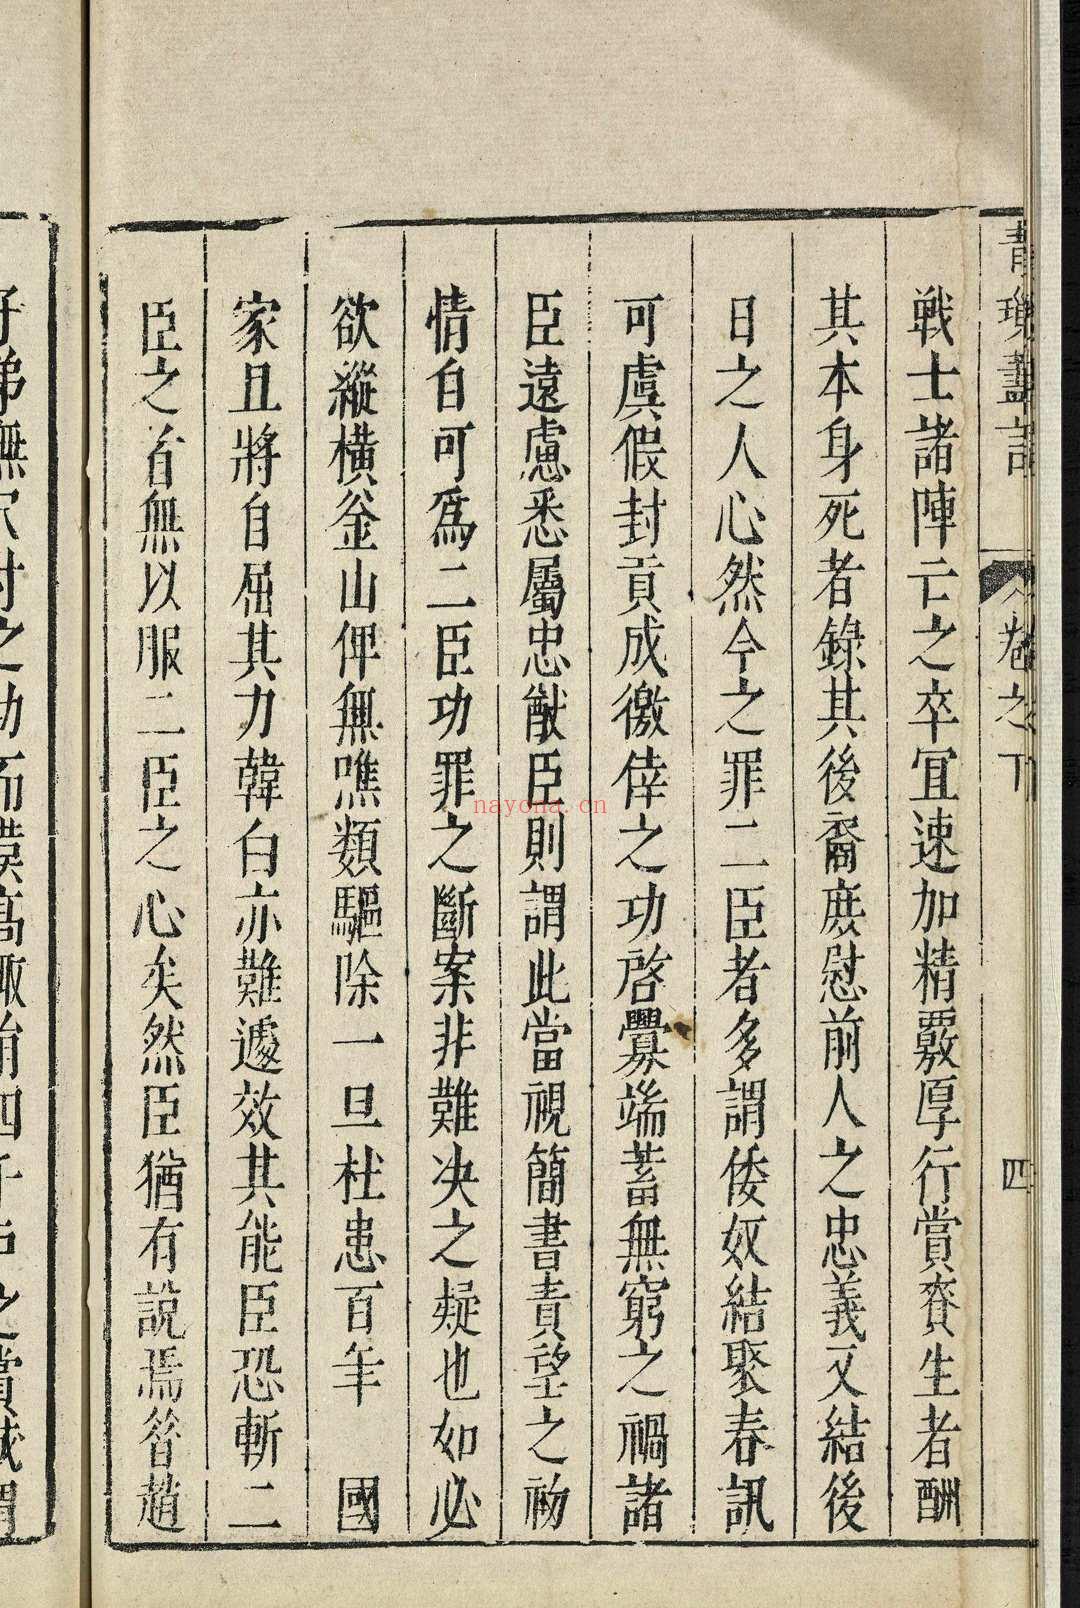 青瑣藎言
卷之下
四
戰士諸陣亡之卒宜速加精覈厚行賞賚生者酬
其本身死者錄其後裔庶慰前人之忠義又結後
日之人心然今之罪二臣者多謂倭奴結聚春訊
可虞假封貢成徼倖之功啓釁端蓄無窮之禍諸
臣遠慮悉屬忠猷臣則謂此當視簡書責望之初
情自可爲二臣功罪之斷案非難决之疑也如必
欲縱橫釜山俾無噍類驅除一旦杜患百年　國
家且將自屈其力韓白亦難遽效其能臣恐斬二
臣之首無以服二臣之心矣然臣猶有說焉昝趙
nayona.cn